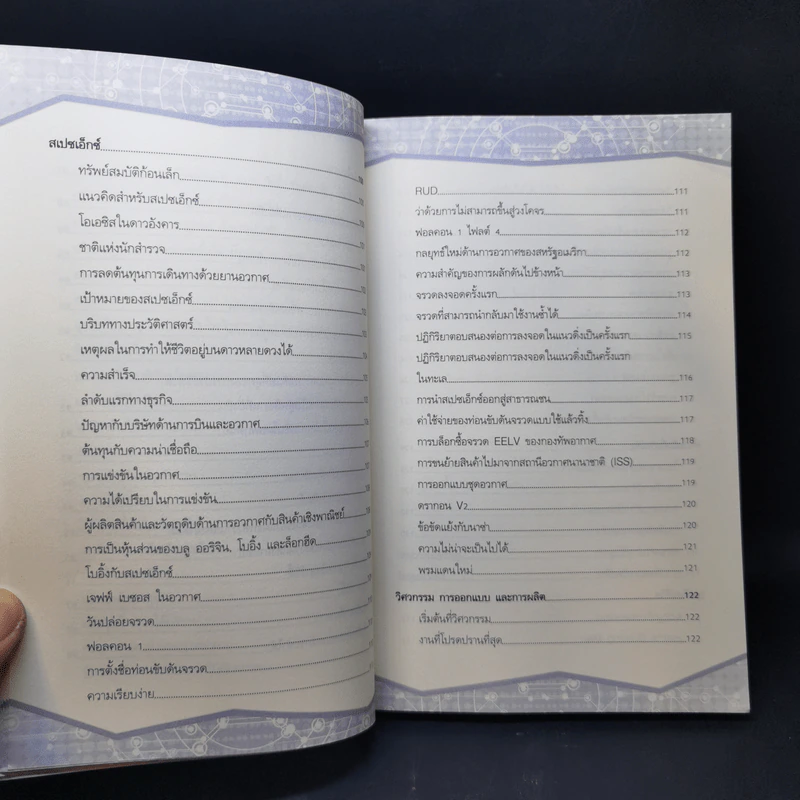 สเปซเอ็กซ์
ทรัพย์สมบัติก้อนเล็ก
แนวคิดสำหรับสเปซเอ็กซ์
โอเอซิสในดาวอังคาร
ชาติแห่งนักสำรวจ
การลดต้นทุนการเดินทางด้วยยานอวกาศ
เป้าหมายของสเปซเอ็กซ์
บริบททางประวัติศาสตร์
เหตุผลในการทำให้ชีวิตอยู่บนดาวหลายดวงได้
ความสำเร็จ
ลำดับแรกทางธุรกิจ
ปัญหากับบริษัทด้านการบินและอวกาศ
ต้นทุนกับความน่าเชื่อถือ
การแข่งขันในอวกาศ
ความได้เปรียบในการแข่งขัน
ผู้ผลิตสินค้าและวัตถุดิบด้านการอวกาศกับสินค้าเชิงพาณิชย์
การเป็นหุ้นส่วนของบลู ออริจิน, โบอิ้ง และล็อกฮีด
โบอิ้งกับสเปซเอ็กซ์
เจฟฟ์ เบซอส ในอวกาศ
วันปล่อยจรวด
ฟอลคอน 1
การตั้งชื่อท่อนขับดันจรวด
ความเรียบง่าย
RUD 111
ว่าด้วยการไม่สามารถขึ้นสู่วงโคจร 111
ฟอลคอน 1 ไฟลต์ 4 112
กลยุทธ์ใหม่ด้านการอวกาศของสหรัฐอเมริกา 112
ความสำคัญของการผลักดันไปข้างหน้า 113
จรวดลงจอดครั้งแรก 113
จรวดที่สามารถนำกลับมาใช้งานซ้ำได้ 114
ปฏิกิริยาตอบสนองต่อการลงจอดในแนวดิ่งเป็นครั้งแรก 115
ปฏิกิริยาตอบสนองต่อการลงจอดในแนวดิ่งเป็นครั้งแรก
ในทะเล 116
การนำสเปซเอ็กซ์ออกสู่สาธารณชน 117
ค่าใช้จ่ายของท่อนขับดันจรวดแบบใช้แล้วทิ้ง 117
การบล็อกซื้อจรวด EELV ของกองทัพอากาศ 118
การขนย้ายสินค้าไปมาจากสถานีอวกาศนานาชาติ (ISS) 119
การออกแบบชุดอวกาศ 119
ดรากอน V2 120
ข้อขัดแย้งกับนาซ่า 120
ความไม่น่าจะเป็นไปได้ 121
พรมแดนใหม่ 121
วิศวกรรม การออกแบบ และการผลิต 122
เริ่มต้นที่วิศวกรรม 122
งานที่โปรดปรานที่สุด 122